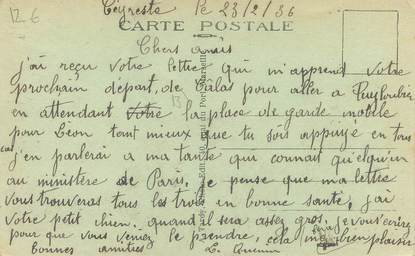 12 €
Ceyreste le 23/2/36
CARTE POSTALE
Chers amis
j'ai reçu votre lettre qui m'apprend votre
prochain départ, de Calas pour aller a Puyloubier
en attendant votre la place de garde mobile
pour Léon tout mieux que tu sois appuyé en tous
cas j'en parlerai a ma tante qui connait quelqu'un
au ministère de Paris. je pense que ma lettre
vous trouveras tous les trois en bonne santé, j'ai
votre petit chien. quand il sera assez gros, je vous écrirez
pour que vous veniez le prendre, cela me fera bien plaisir
bonnes amitiés